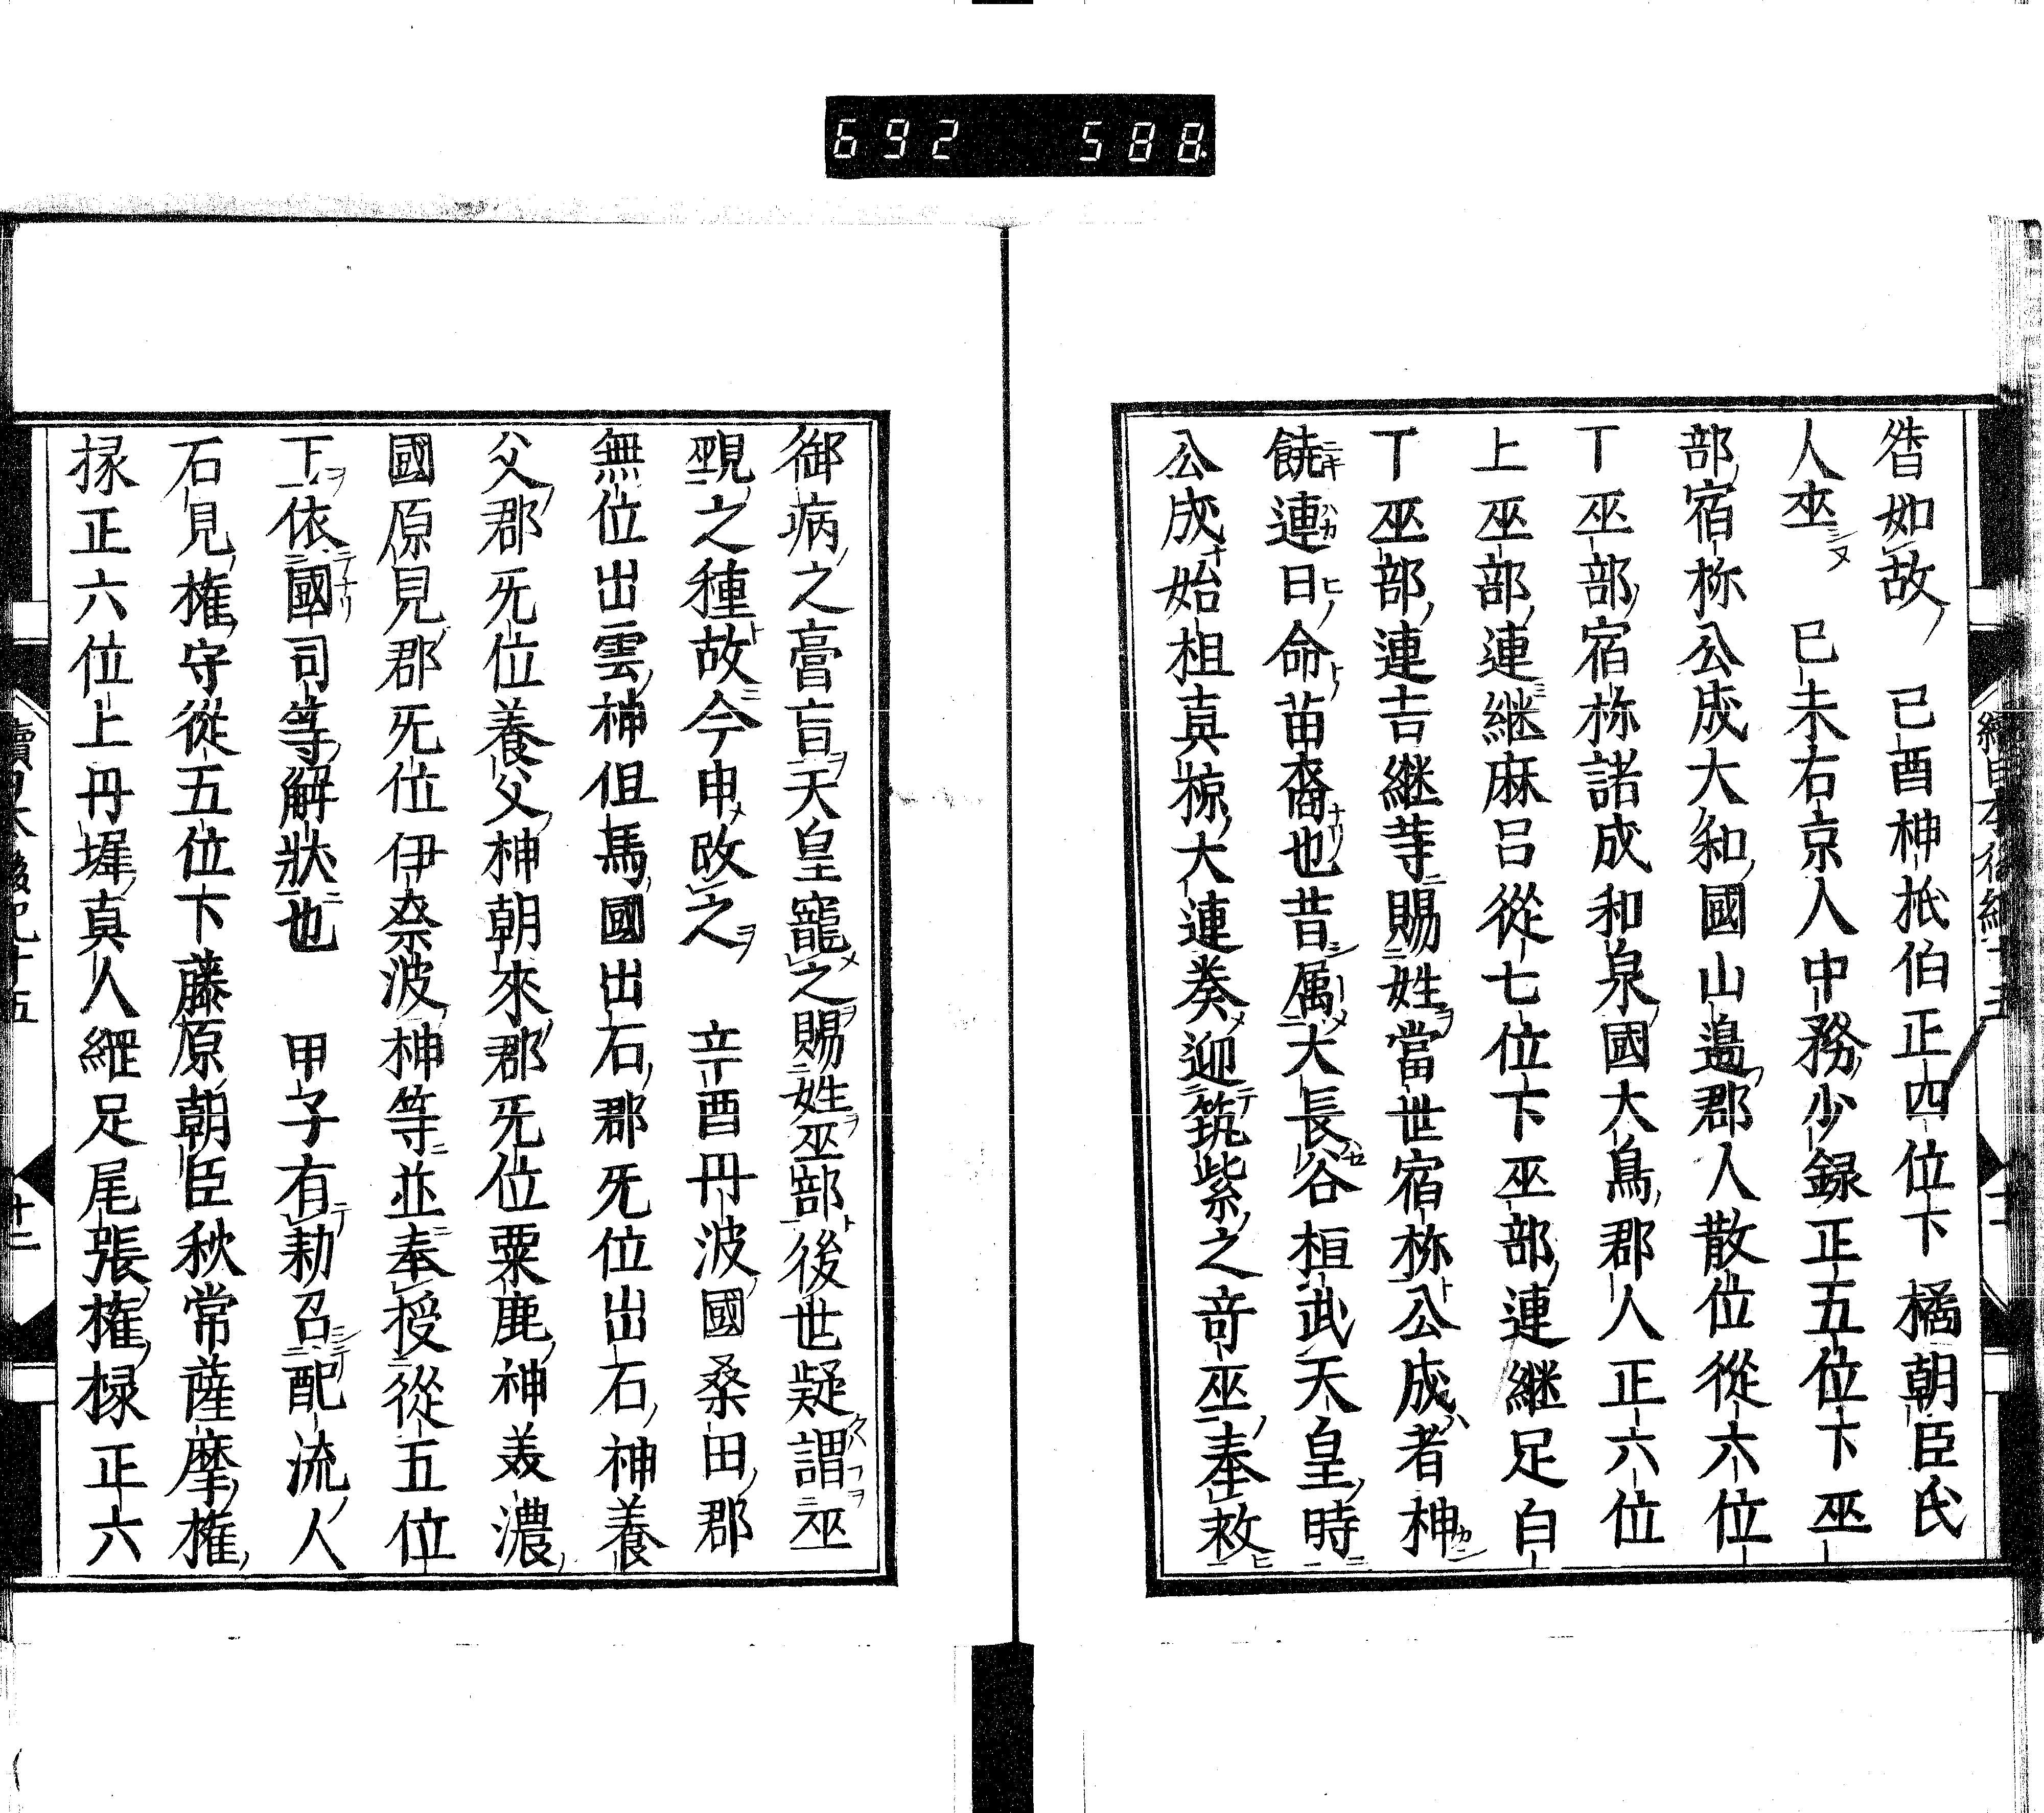 692 588
皆如故 己酉神祇伯正四位下橘朝臣氏
人卒 己未右京人中務少録正五位下巫
部宿祢公成大和國山邊郡人散位從六位
下巫部宿祢諸成和泉國大鳥郡人正六位
上巫部連継麻呂從七位下巫部連継足白
丁巫部連吉継等賜姓當世宿祢公成者神
饒連日命苗裔也昔属大長谷桓武天皇時
公成始祖真椋大連奏迎筑紫之竒巫奉救
御病之膏盲天皇寵之賜姓巫部後世疑謂巫
覡之種故今申改之 辛酉丹波國桑田郡
無位出雲神伹馬國出石郡无位出石神養
父郡无位養父神朝來郡无位粟鹿神美濃
國原見郡无位伊奈波神等並奉授從五位
下依國司等解狀也 甲子有勅召配流人
石見權守從五位下藤原朝臣秋常薩摩權
掾正六位上丹墀真人縄足尾張權掾正六
續日本後紀十五
十二